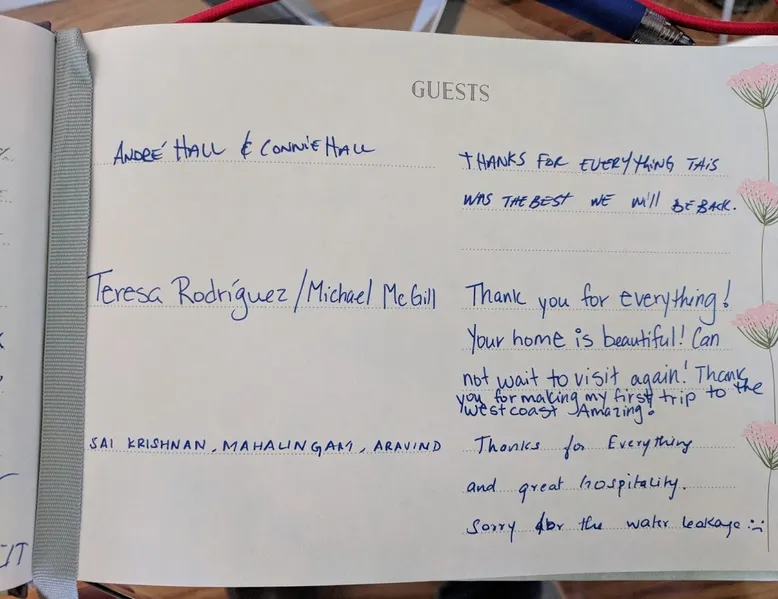 GUESTS
ANDRÉ HALL & CONNIE HALL
THANKS FOR EVERYTHING THIS
WAS THE BEST WE WILL BE BACK.
Teresa Rodríguez/Michael McGill
Thank you for everything!
Your home is beautiful! Can
not wait to visit again! Thank
you for making my first trip to the
west coast Amazing!
SAI KRISHNAN, MAHALINGAM, ARAVIND
Thanks for Everything
and great hospitality.
Sorry for the water leakage :)